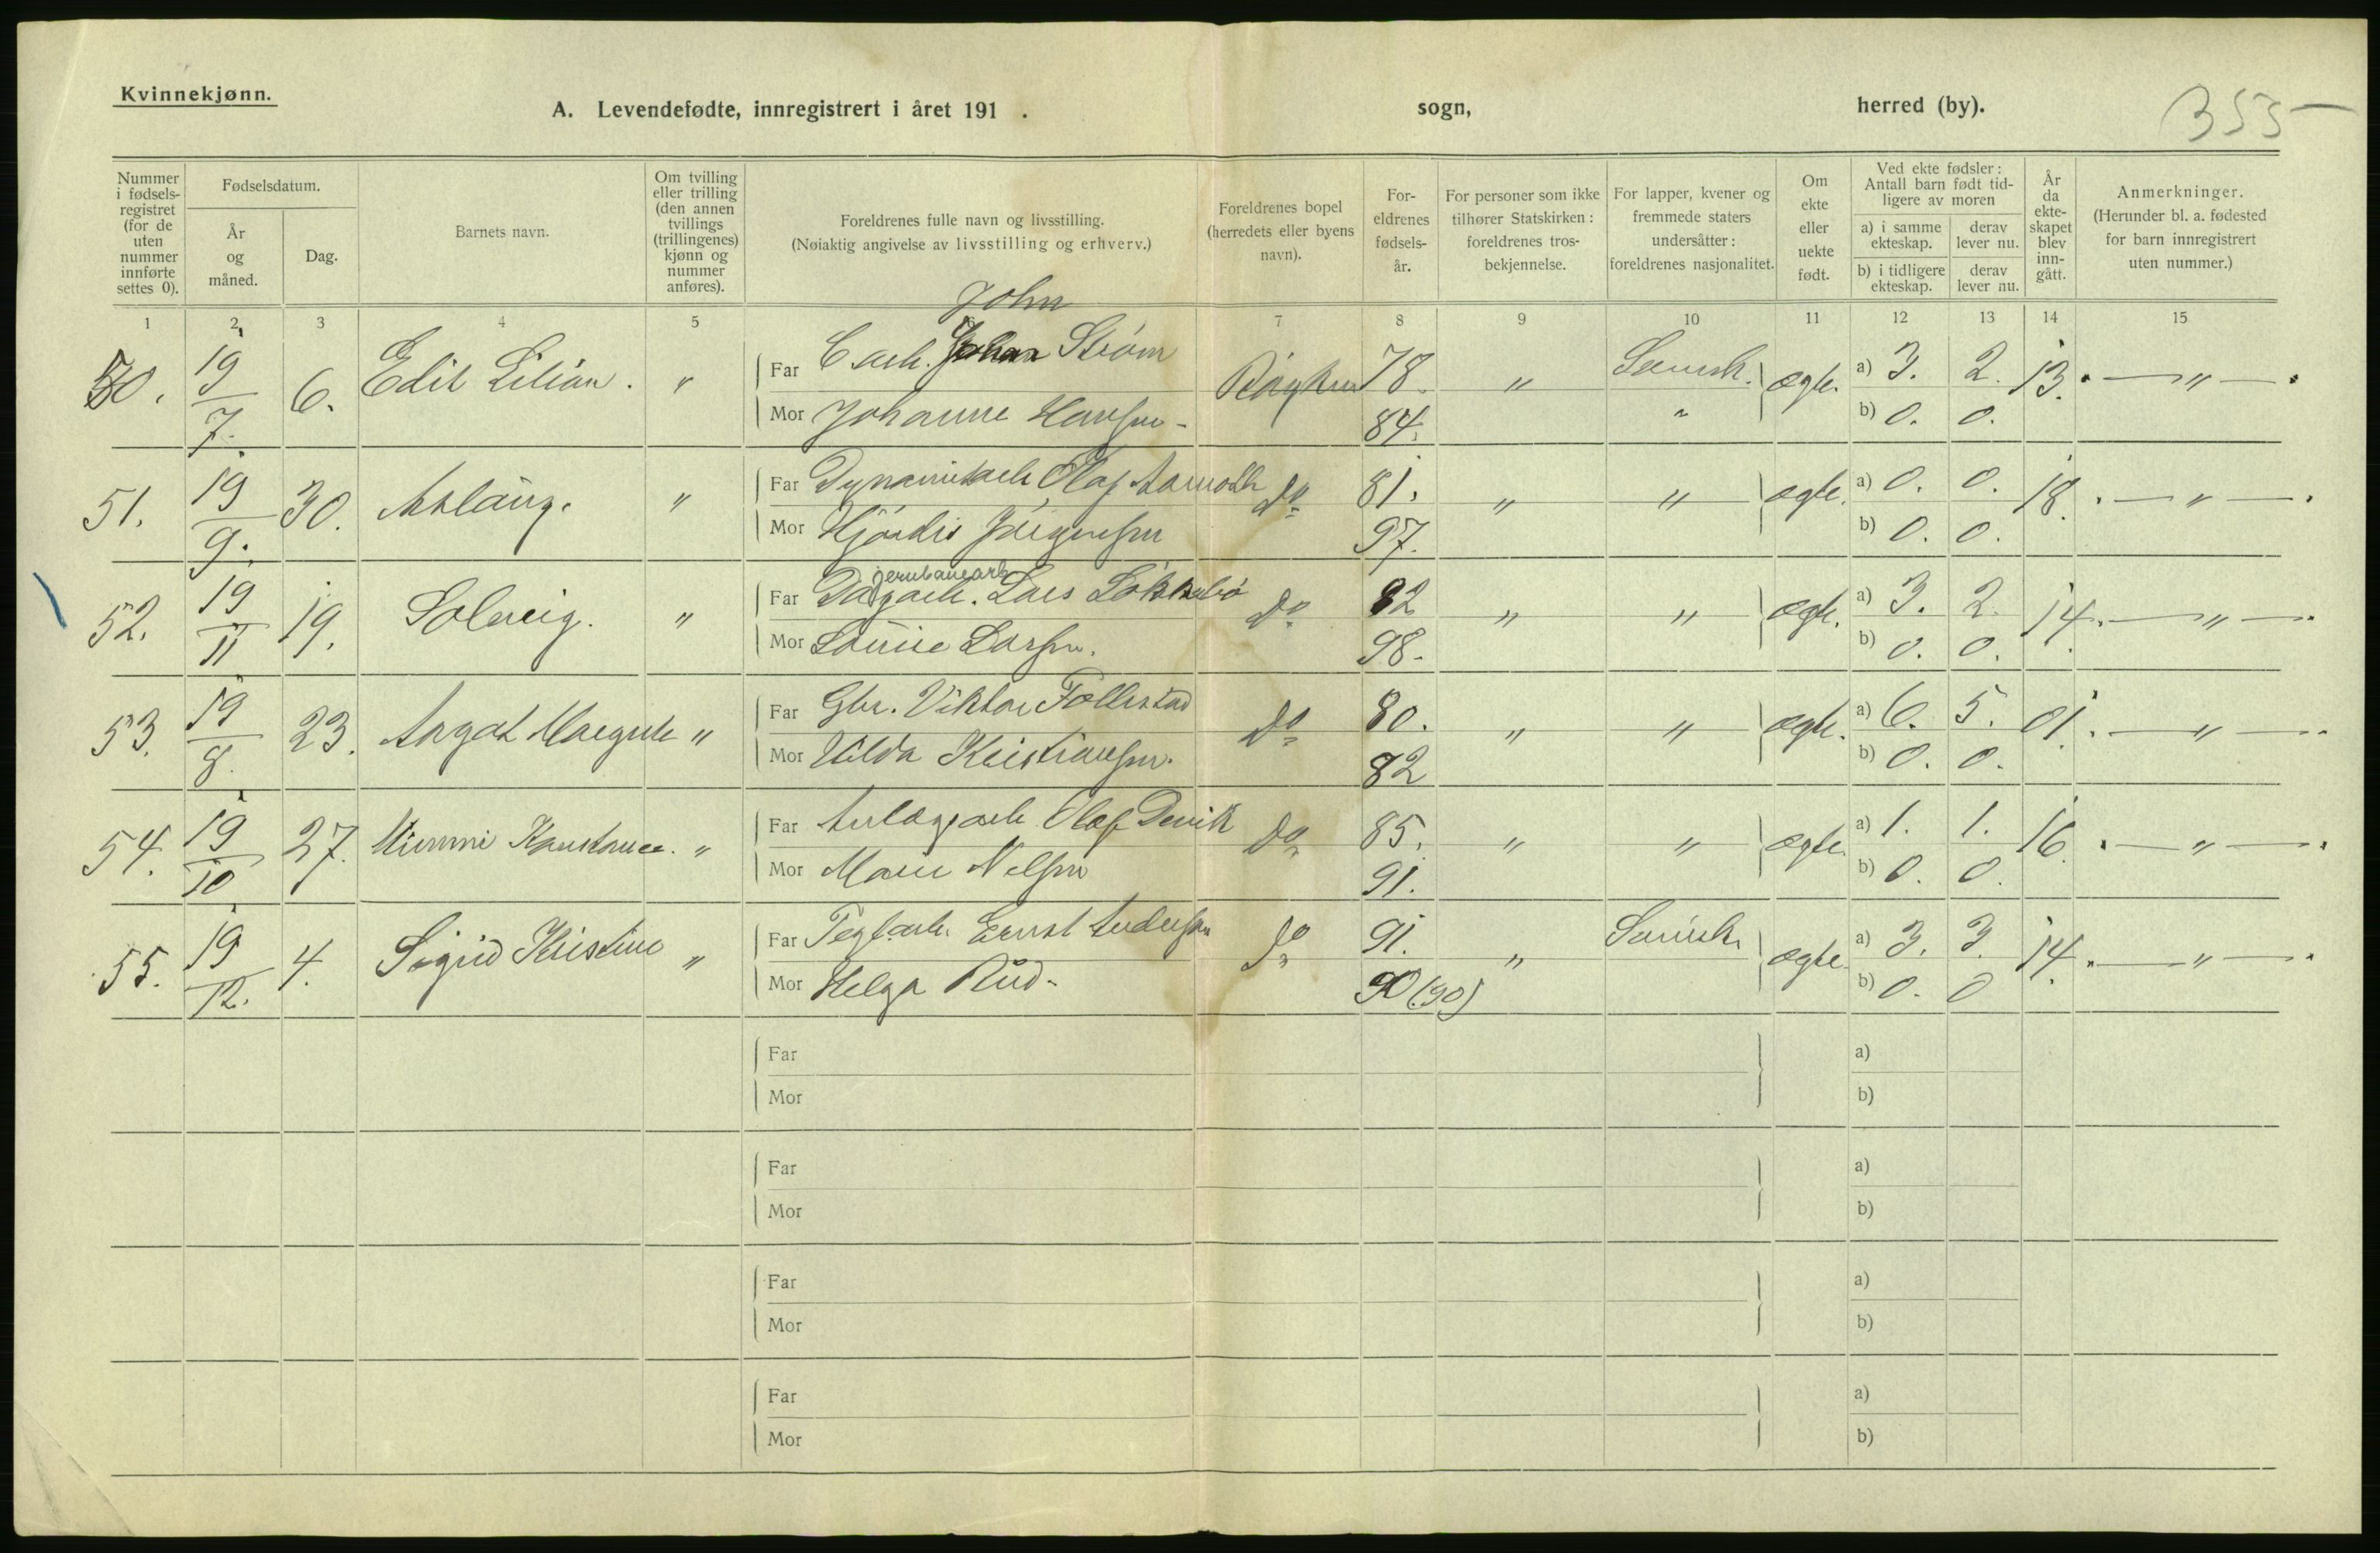 Kvinnekjønn.
A. Levendefødte, innregistrert i året 191 . sogn, herred (by). 355
Nummer i fødsels-registret (for de uten nummer innførte settes 0).
Fødselsdatum.
År og måned.
Dag.
Barnets navn.
Om tvilling eller trilling (den annen tvillings (trillingenes) kjønn og nummer anføres).
Foreldrenes fulle navn og livsstilling.
(Nøiaktig angivelse av livsstilling og erhverv.)
Foreldrenes bopel (herredets eller byens navn).
For-eldrenes fødsels-år.
For personer som ikke tilhører Statskirken: foreldrenes tros-bekjennelse.
For lapper, kvener og fremmede staters undersåtter: foreldrenes nasjonalitet.
Om ekte eller uekte født.
Ved ekte fødsler: Antall barn født tid-ligere av moren
a) i samme ekteskap. derav lever nu.
b) i tidligere ekteskap. derav lever nu.
År da ekte-skapet blev inn-gått.
Anmerkninger.
(Herunder bl. a. fødested for barn innregistrert uten nummer.)
1 2 3 4 5 6 7 8 9 10 11 12 13 14 15
John
50. 19/7. 6. Edit Lilian. " Far Johan Strøm Røyken 78. " Svensk. ægte. a) 3. 2. 13. — " —
Mor Johanne Hansen - 84. " b) 0. 0.
51. 19/9. 30. Aslaug. " Far Dynamitarb Olaf Do 81. " " ægte. a) 0. 0. 18. — " —
Mor Hjørdis Jørgensen 97. b) 0. 0.
jernbanearb
52. 19/11 19. Solveig. " Far Dagarb. Lars Do 82 " " ægte. a) 3. 2. 14. — " —
Mor Louise Larsen. 98. b) 0. 0.
53. 19/8. 23. Aagot Margrete " Far Gbr. Viktor Follestad Do 80. " " ægte. a) 6. 5. 01. — " —
Mor Hilda Kristiansen. 82 b) 0. 0.
54. 19/10 27. Mimmi Konstance. " Far Anlægsarb Olaf Do 85. " " ægte a) 1. 1. 16. — " —
Mor Marie Nelsen 91. b) 0. 0.
55. 19/12. 4. Sigrid Kristine " Far Teglarb. Ernst Andersen Do 91. " Svensk ægte a) 3. 3. 14. — " —
Mor Helga Rud - 90 (90) b) 0. 0
Far a)
Mor b)
Far a)
Mor b)
Far a)
Mor b)
Far a)
Mor b)